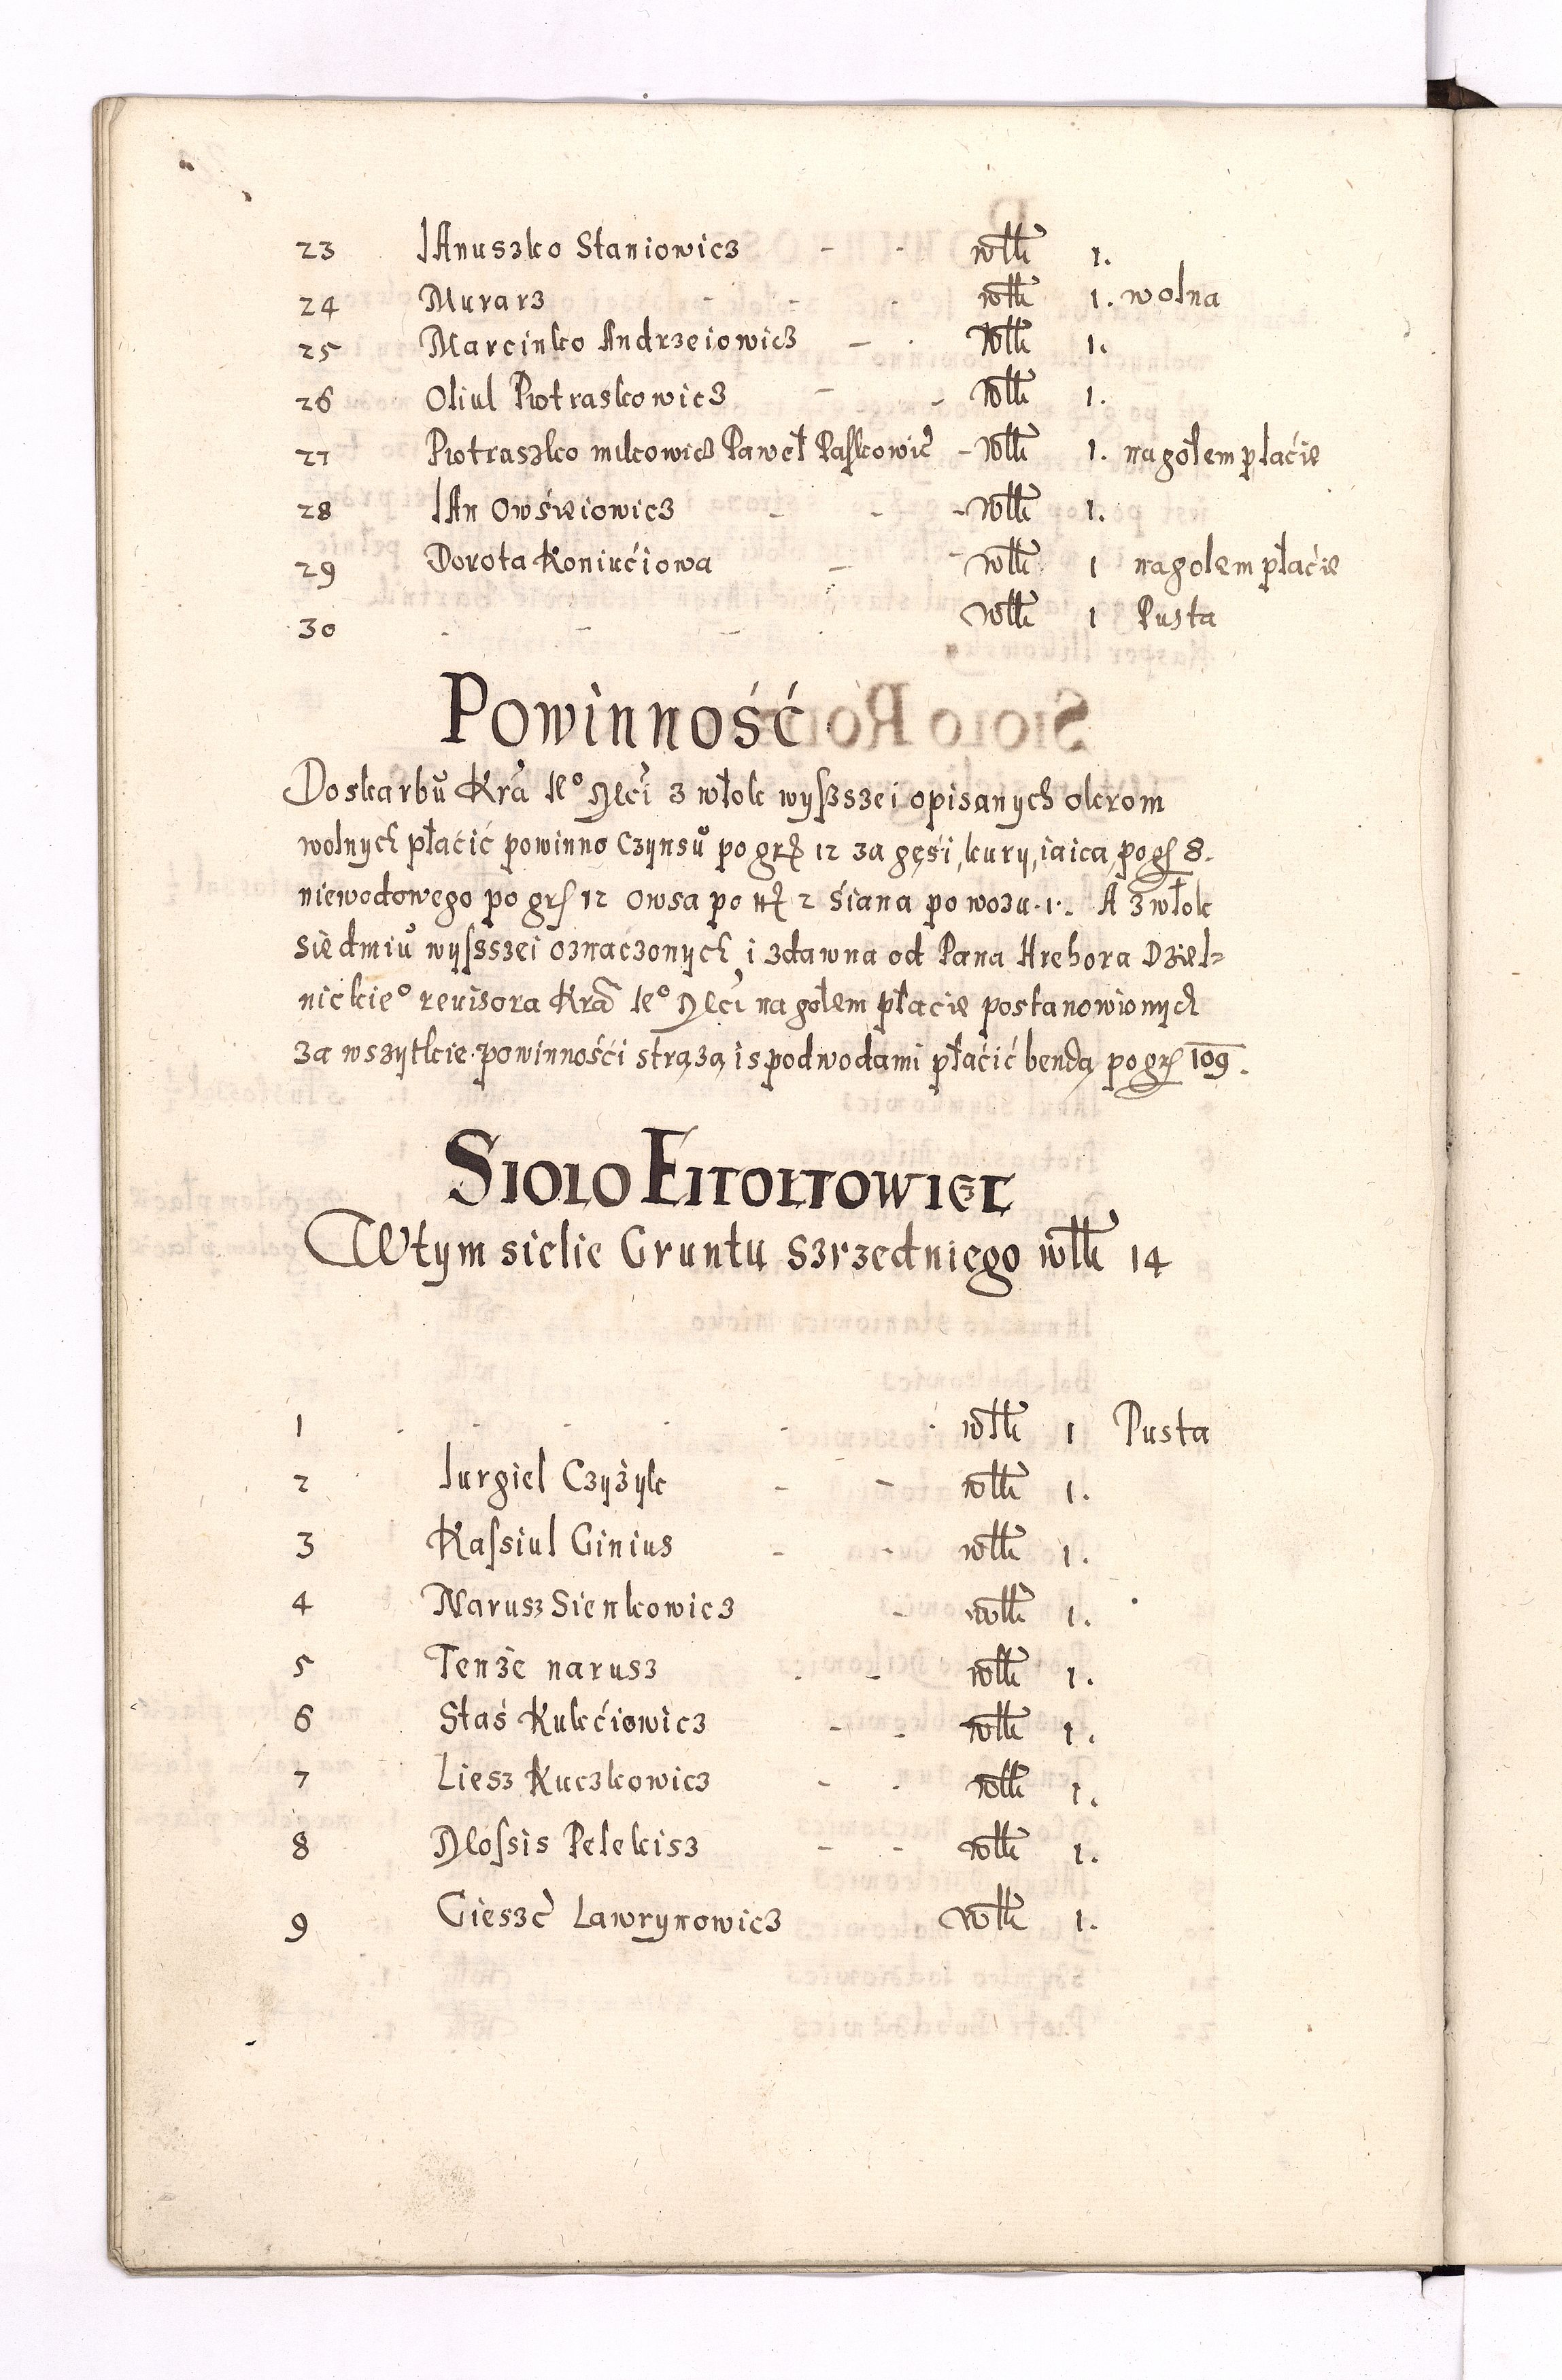 23 IAnuszko Staniowicz - - włk 1.
24 Murarz - - - włk 1. wolna
25 Marcinko Andrzeiowicz - . włk 1.
26 Oliul Piotraskowicz - - włk 1.
27 Piotraszko milcowicz Paweł Paskowic - włk 1. na gołem płacie
28 IAn Owsieiowicz - - - włk 1.
29 Dorota Koniućiowa - - włk 1 na golem płacie
30 . - - . włk 1 Pusta
Powinność
Do skarbu Kra Ie° Mci z włok wyszszei opisanych okrom
wolnych płacić powinno Czynsu po gr 12 za gęsi, kury, iaica, po g 8.
niewodowego po gr 12 owsa po 2 siana po wozu .1. A z włok
siedmiu wysszei oznaczonych i zdawna od Pana Hrehora Dziel=
nickie° reuisora Kra Ie° Mci na gołem płacie postanowionych
za wszytkie powinnośći strażą i s podwodami płaćić bendą po gr 109.
SIOLO EITOLTOWIEC
W tym sielie Gruntu szrzedniego włk 14
1 . - - - - . włk 1 Pusta
2 Iurgiel Czyżyk - - włk 1.
3 Kassiul Ginius - - włk 1.
4 Narusz Sienkowicz - włk 1.
5 Tenże narusz - - włk 1.
6 Staś Kulećiowicz - - włk 1.
7 Liesz Kuczkowicz - - włk 1.
8 Mossis Pelekisz - - włk 1.
9 Gieszc Lawrynowicz włk 1.